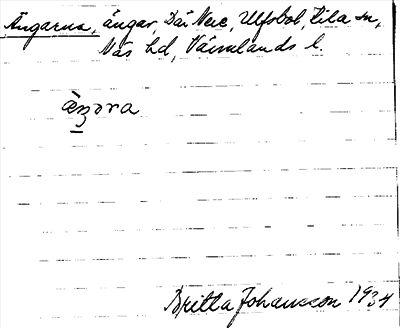 Ängarna, ängar, Där Nere, Ulfsbol, Kila sn,
Näs hd, Värmlands l.
Britta Johansson 1934